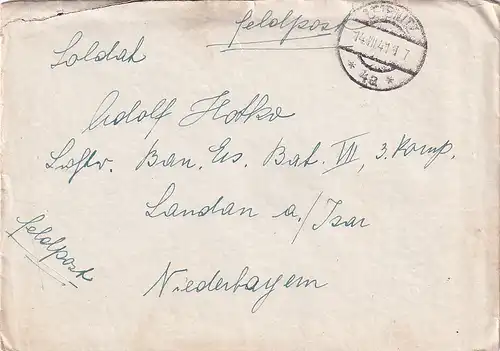 Feldpost
14.III.41
* 4a *
Soldat
Adolf Hotko
Luftw. Bau. Ers. Bat. VII, 3. Komp.
Landau a./Isar
Niederbayern
Feldpost